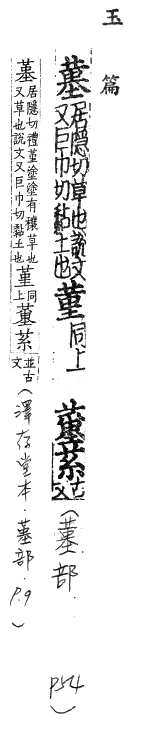 玉篇
蓳 居隱切草也說文又巨巾切黏土也 堇 同上 蓳 䒺 古文 (蓳部. P54)
墓 居隱切禮菫塗塗有穰草也又草也說文又巨巾切黏土也 菫 同上 蓳 並古文 (澤存堂本.蓳部.P.9)